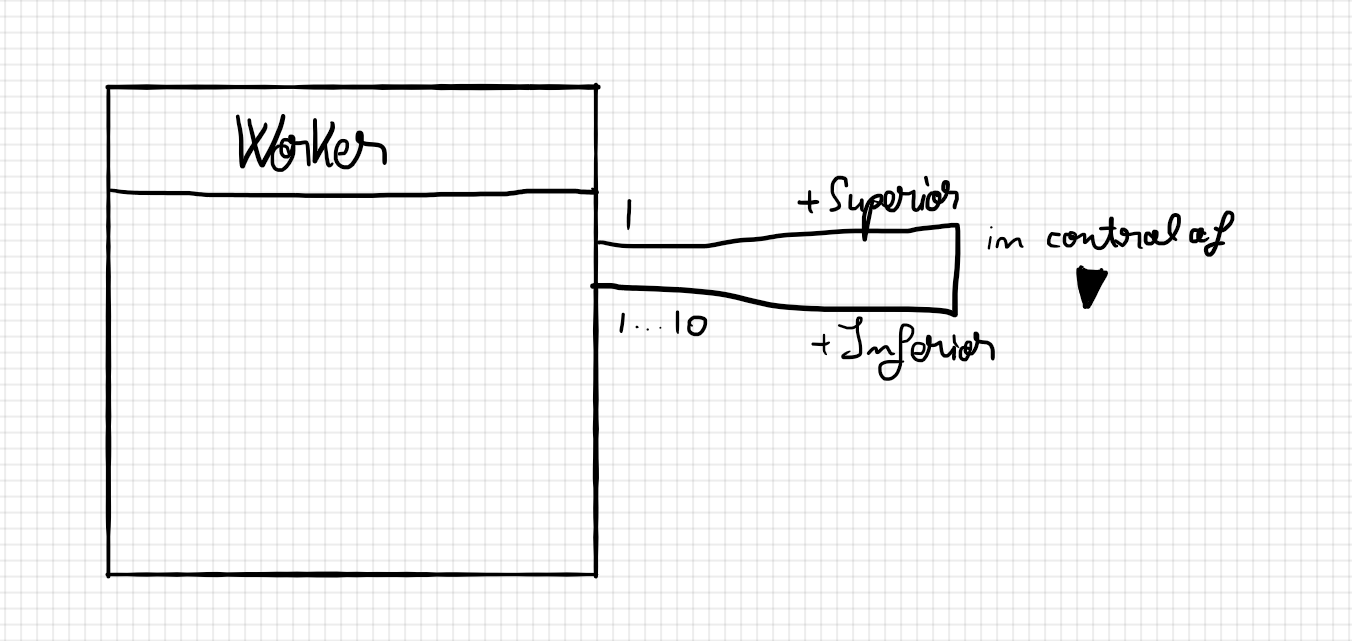 Worker
1
+ Superior
in control of
1...10
+ Inferior